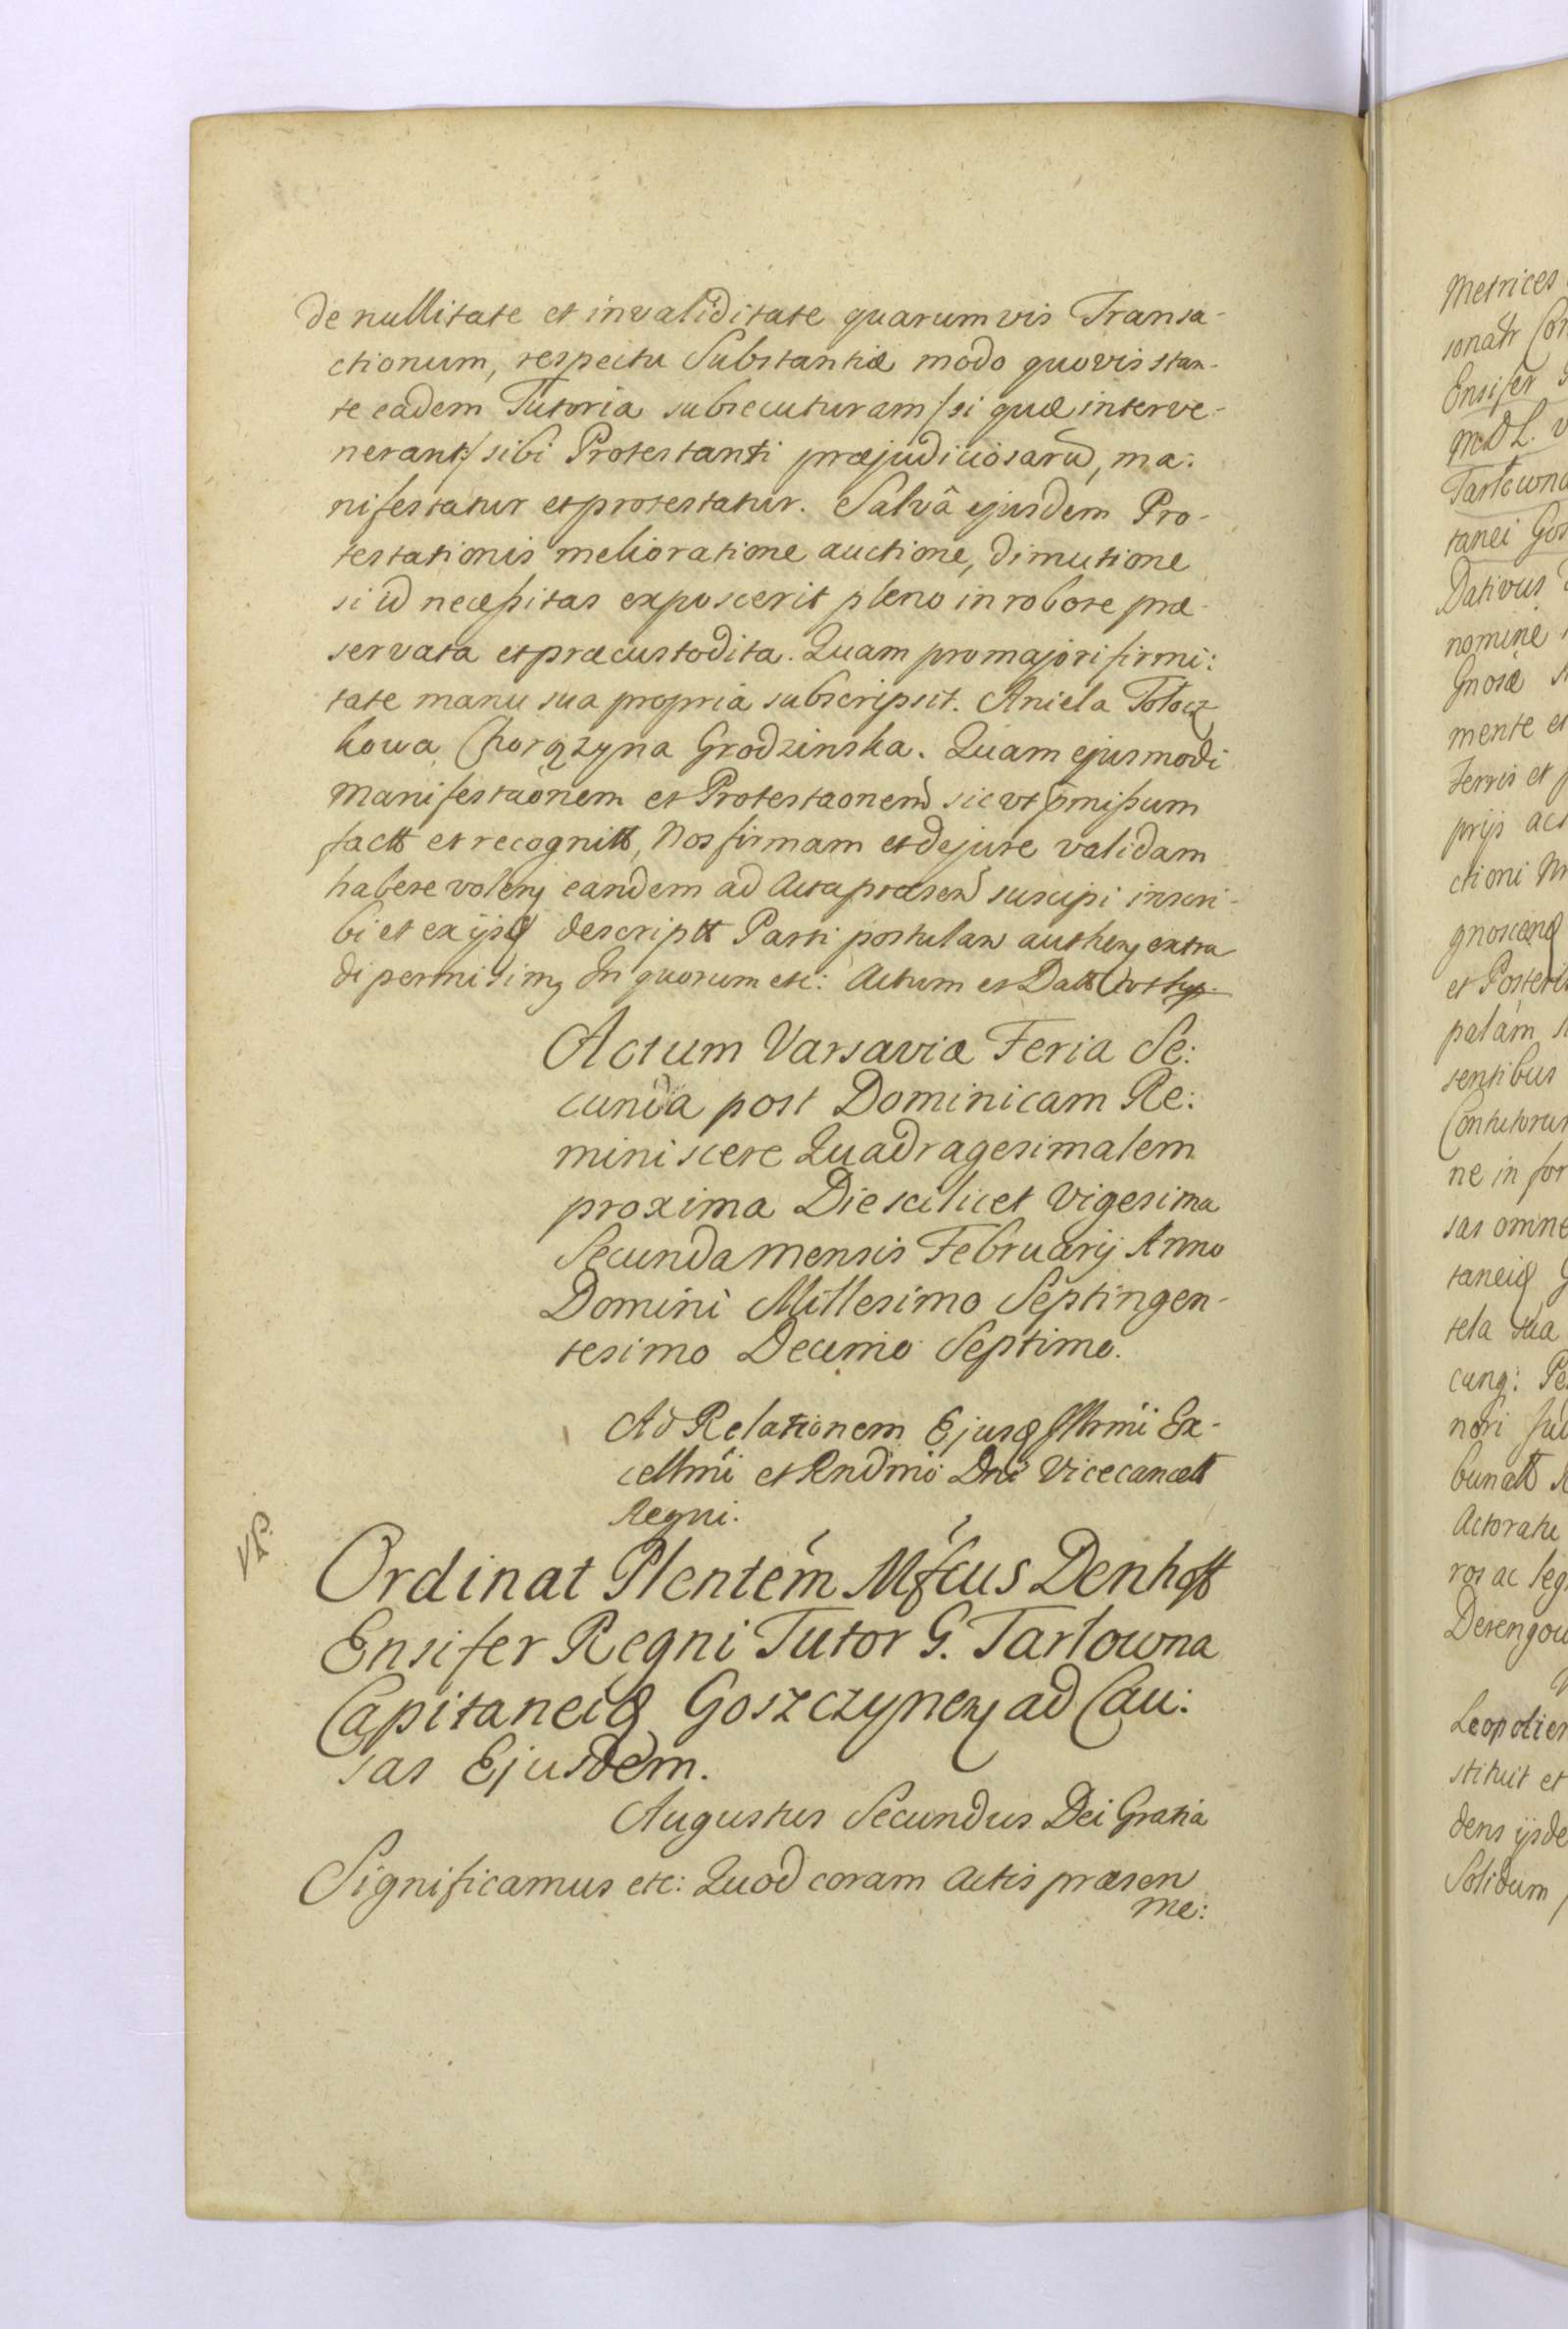 de nullitate et invaliditate quarumvis Transa-
ctionum, respectu Substantiæ modo quovis stan-
te eadem Tutoria subsecuturam /si quæ interve-
nerant/ sibi Protestanti præjudiciosarũ, ma:
nifestatur et protestatur. Salvâ ejusdem Pro-
testationis melioratione auctione, dimutione
si id necessitas exposcerit pleno in robore præ-
servata et præcustodita. Quam pro majori firmi:
tate manu sua propria subscripsit. Aniela Tołocz
kowa Chorążyna Grodzinska. Quam ejusmodi
Manifestaõnem et Protestaonem sic ut pmissum
factt et recognitt, Nos firmam et de jure validam
habere volen eandem ad Acta præsen suscipi inscri-
bi et ex ijsq descriptt Parti postulan authen extra
di permisim, In quorum etc: Actum et Datt
Actum Varsaviæ Feria Se:
cunda post Dominicam Re:
miniscere Quadragesimalem
proxima Die scilicet Vigesima
Secunda mensis Februarij Anno
Domini Millesimo Septingen-
tesimo Decimo Septimo.
Ad Relationem Ejusq Illrmi Ex-
cellmi et Rndmi Dni Vicecancell
Regni.
VP.
Ordinat Plentem Mfcus Denhoff
Ensifer Regni Tutor G. Tarłowna
Capitaneiq Goszczynen ad Cau:
sas Ejusdem.
Augustus Secundus Dei Gratia
Significamus etc: Quod coram Actis præsen
me:
Metrices
sonatr Con
Ensifer
MDL. v
Tarłowna
tanei Gos
Dativus
nomine
Gnosæ
mente et
Ferris et
prijs act
ctioni
gnoscenq
et Posterit
palam
sentibus
Contutorum
ne in for
sas omne
taneiq G
tela sua
cunq: Pe
neri Jud
bunatt
Actoratu
ros ac leg
Derengow
Leopolien
stituit et
dens ijsde
Solidum